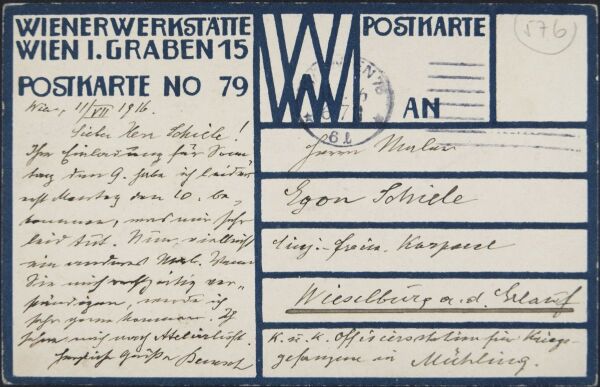 WIENER WERKSTÄTTE
WIEN I. GRABEN 15
POSTKARTE NO 79
WW
POSTKARTE
AN
576
Wien, 11/VII 1916.
Lieber Herr Schiele!
Ihre Einladung für Sonn-
tag den 9. habe ich leider
erst Montag den 10. be-
kommen, was mir sehr
leid tut. Nun, vielleicht
ein anderes Mal. Wenn
Sie mich rechtzeitig ver-
ständigen, würde ich
sehr gerne kommen.
sehne mich nach Atelierluft.
Herzliche Grüße
Herrn Maler
Egon Schiele
Einj.-freiw. Korporal
Wieselburg a. d. Erlauf
K. u. k. Offiziersstation für Kriegs-
gefangene in Mühling.